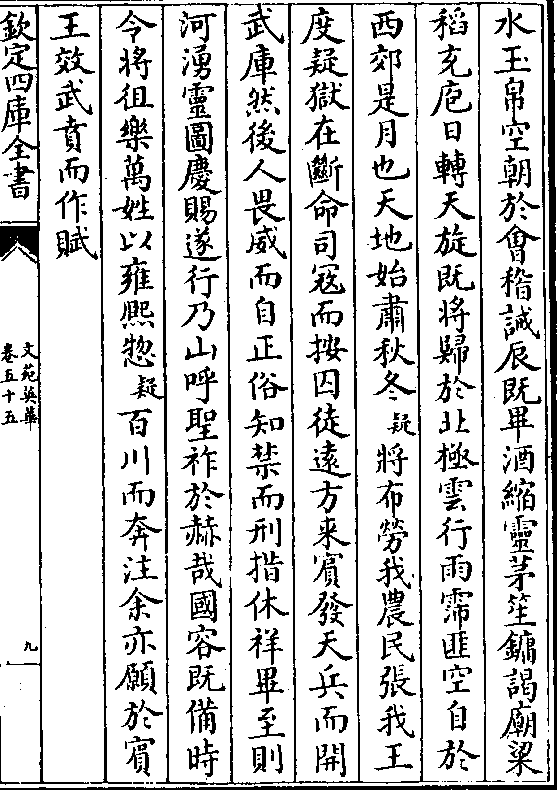 水玉帛空朝於㑹稽諴辰既畢酒縮靈茅笙鏞謁廟粱
稻充庖日轉天旋既將歸於北極雲行雨霈匪空自於
西郊是月也天地始肅秋冬疑將布勞我農民張我王
度疑獄在斷命司寇而按囚徒遠方来賔發天兵而開
武庫然後人畏威而自正俗知禁而刑措休祥畢至則
河湧靈圖慶賜遂行乃山呼聖祚於赫哉國容既備時
令將徂樂萬姓以雍熙惣疑百川而奔注余亦願於賔
王效武賁而作賦
欽定四庫全書
文苑英華
卷五十五
九